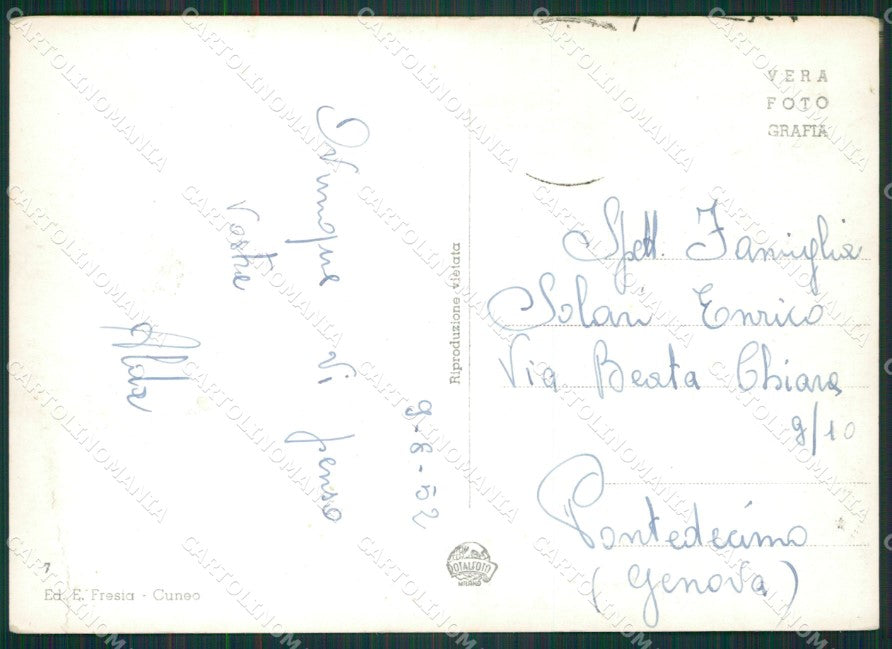 9-8-52
Ovunque vi penso
Vostra
Alda
VERA
FOTO
GRAFIA
Riproduzione vietata
Spett. Famiglia
Solari Enrico
Via Beata Chiara
9/10
Pontedecimo
(Genova)
Ed. E. Fresia - Cuneo
ROTALFOTO
MILANO
CARTOLINOMANIA